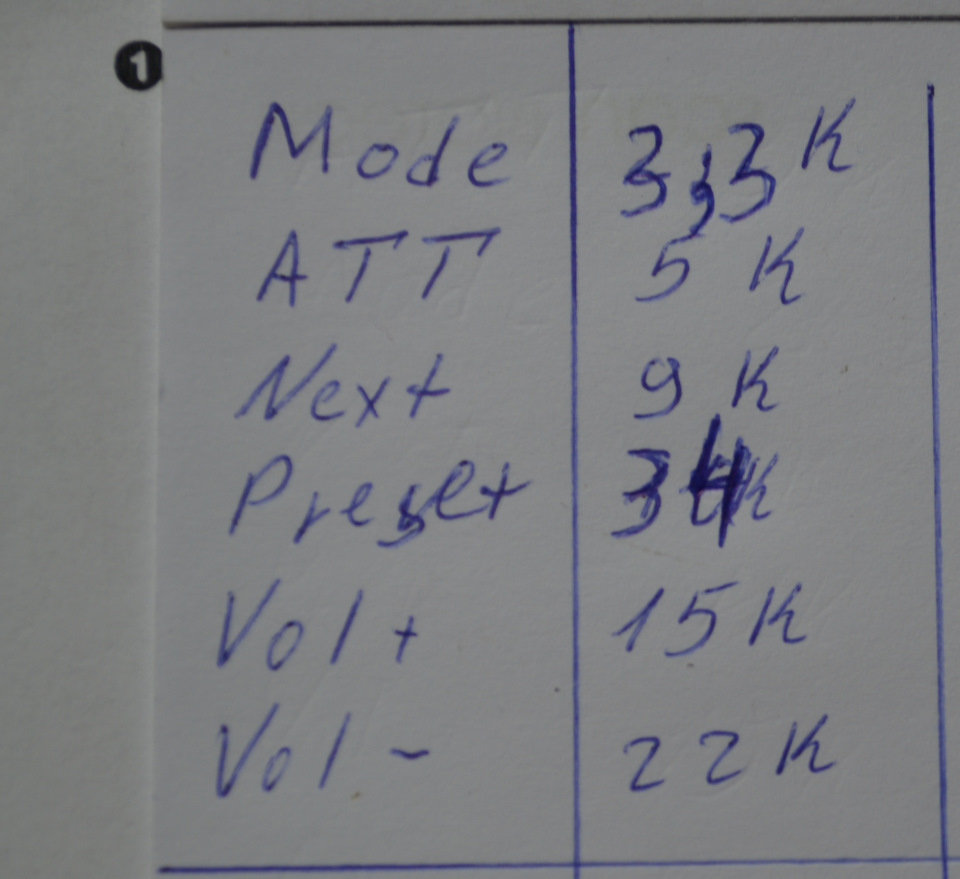 1
Mode 3,3 K
ATT 5 K
Next 9 K
Preset 34K
Vol + 15 K
Vol - 22 K